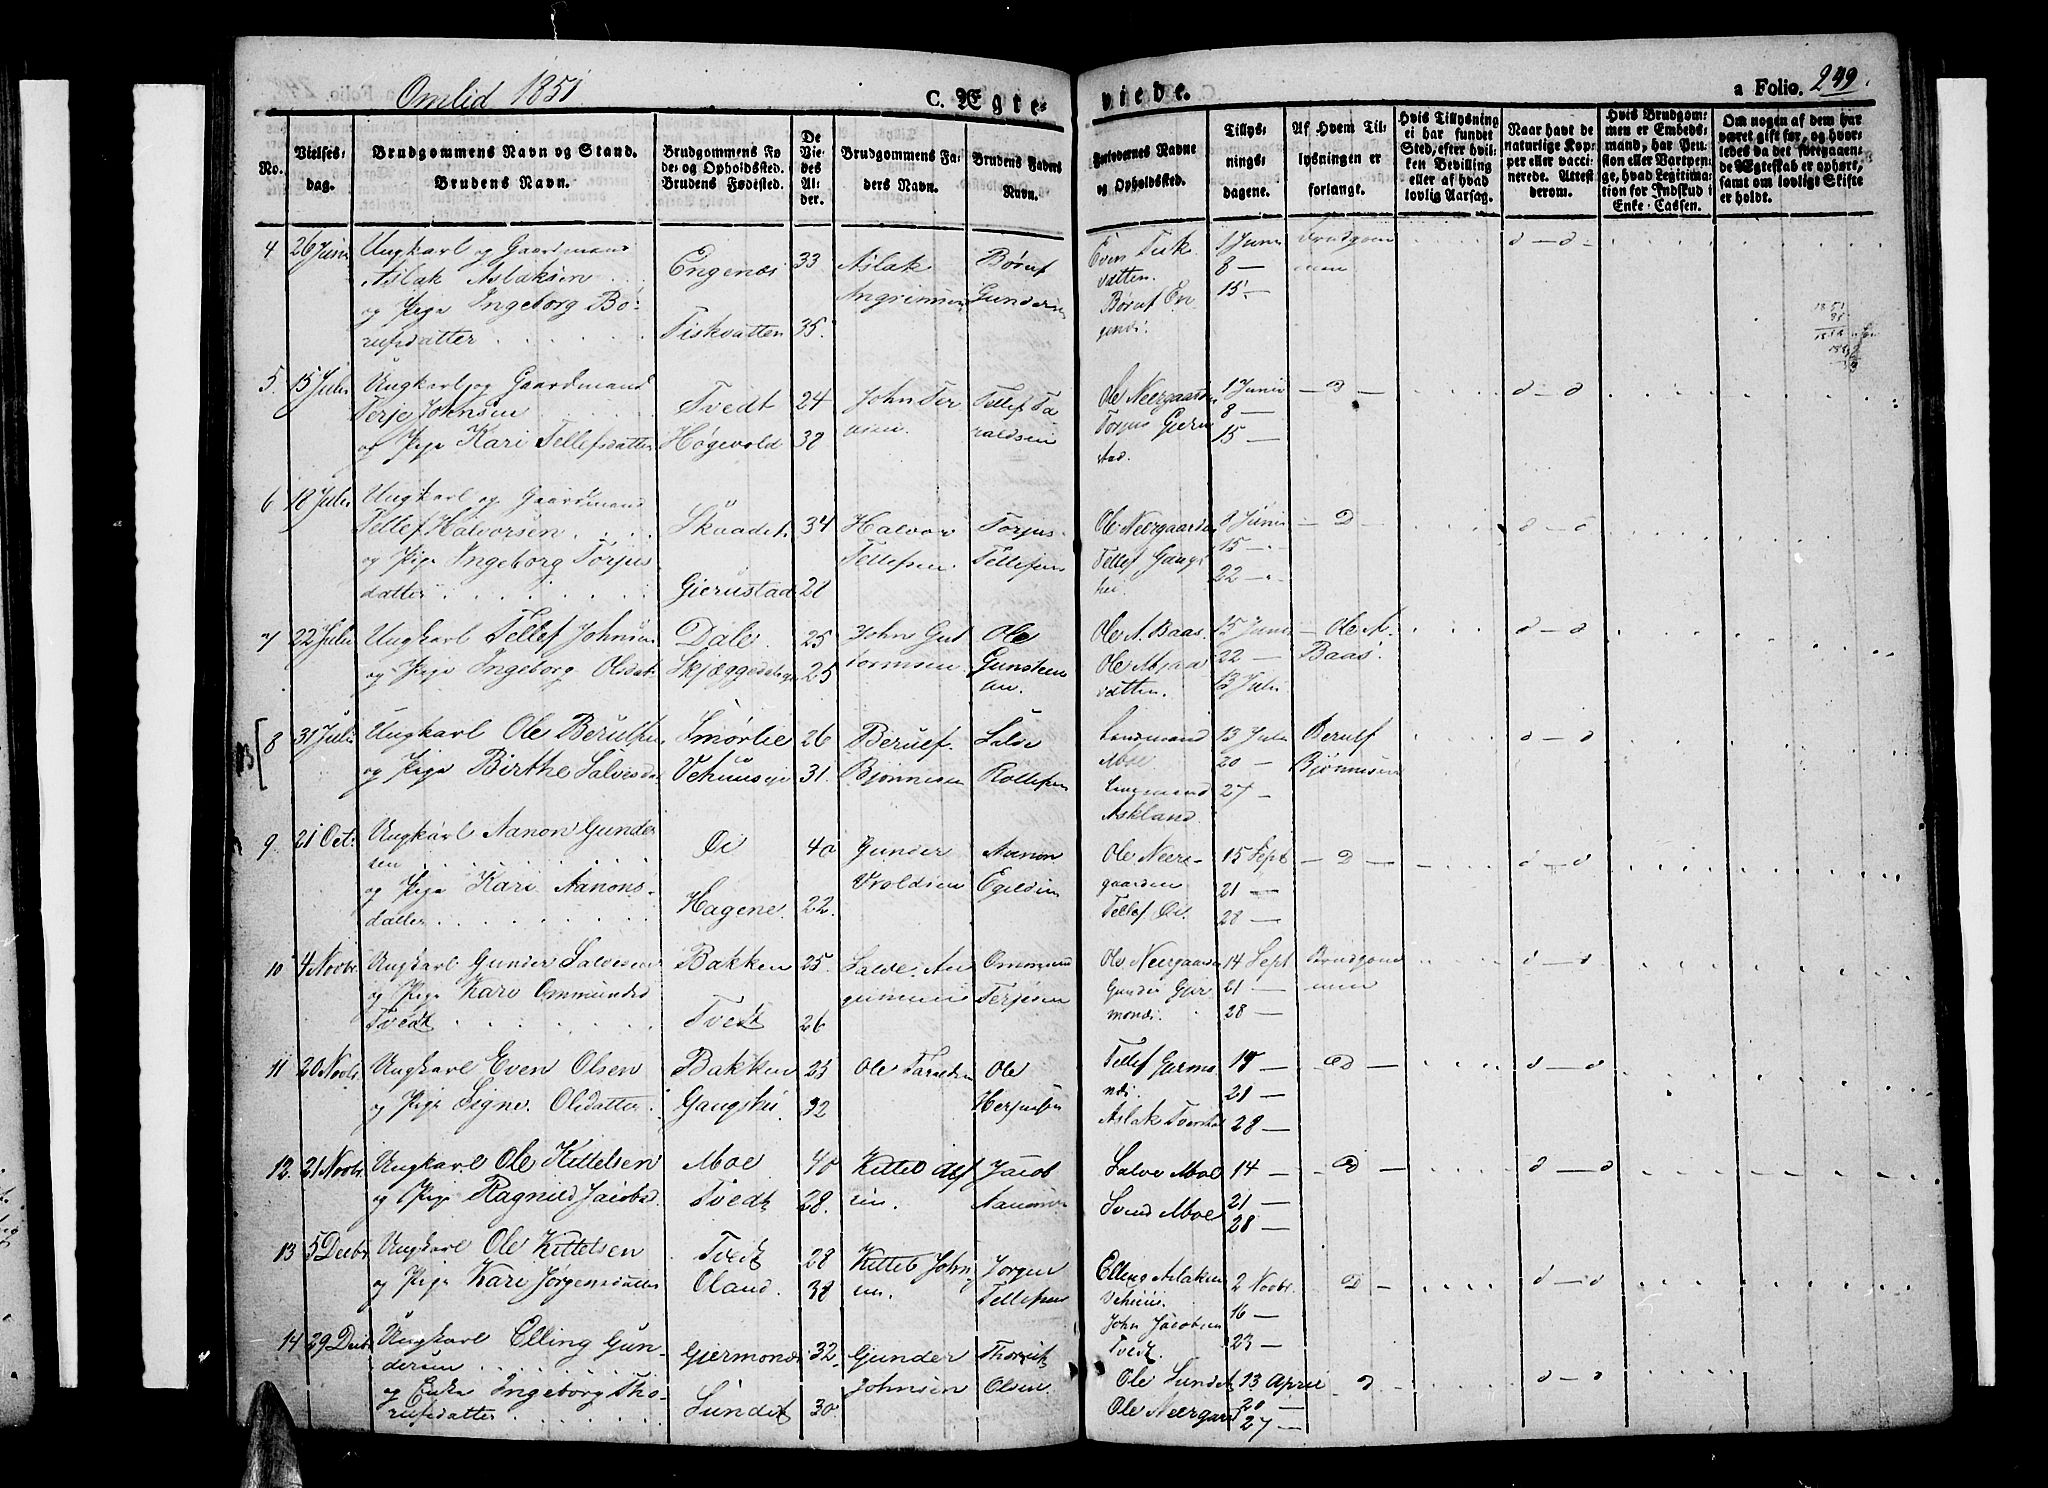 Omlid 1851
C. Ægte-
viede.
a Folio. 249.
No.
Vielses-
dag.
Brudgommens Navn og Stand.
Brudens Navn.
Brudgommens Fø
de- og Opholdssted.
Brudens Fødested.
De
Vie-
des
Al-
der.
Brudgommens Fa-
ders Navn.
Brudens Faders
Navn.
Forlovernes Navne
og Opholdssted.
Tillys-
nings-
dagene.
Af Hvem Til-
lysningen er
forlangt.
Hvis Tillysning
ei har fundet
Sted, efter hvil-
ken Bevilling
eller af hvad
lovlig Aarsag.
Naar havt de
naturlige Kop-
per eller vacci-
nerede. Attest
derom.
Hvis Brudgom-
men er Embeds-
mand, har Pen-
sion eller Vartpen-
ge, hvad Legitima-
tion for Indskud i
Enke-Cassen.
Om nogen af dem har
været gift før, og hvor-
ledes da det foregaaen-
de Ægteskab er ophørt,
samt om lovligt Skifte
er holdt.
4 26 Juni Ungkarl og Gaardmand
Aslak Aslaksen
og Pige Ingeborg Bø-
rufsdatter
Engenes 33
Fiskvatten 35.
Aslak
Angrimsen
Børuf
Gundersen
Even Fisk
vatten.
Børuf En
genes.
1 Juni
8 —
15.
Brudgom
men
d — d
5. 15 Juli Ungkarl og Gaardmand
Terje Johnsen
og Pige Kari Tellefsdatter
Tvedt 24
Høgevold 38
John Ter
jesen.
Tellef Ta
raldsen
Ole Neergaarden
Torjus Gjern
stad.
1 Junii
8 —
15 —
— B —
d — d
6 18 Juli Ungkarl og Gaardmand
Tellef Halvorsen
og Pige Ingeborg Torjus
datter
Skaadet 34
Gjernstad 28
Halvor
Tellefsen
Torjus
Tellefsen
Ole Neergaarden
Tellef Gangs
hei.
8 Juni
15 —
22 —
— D
d — d
7 22 Juli Ungkarl Tellef Johnsen
og Pige Ingeborg Olsdat.
Dale 25
Skjæggedalen 25
John Gut
tormsen
Ole
Gunsteen
sen.
Ole A. Baas
Ole Mjaa
vatten.
15 Juni
22 —
13 Juli
— Ole A.
Baas.
d — d
8 31 Juli Ungkarl Ole Berulfsen
og Pige Birthe Salvesdr
Smørlie 26
Vehuus 31.
Berulf
Bjørnsen
Salve
Rollefsen
Lensmand
Moe
Lensmand
Askland.
13 Juli
20 —
27 —
Berulf
Bjørnnsen
d — d
9. 21 Oct. Ungkarl Aanon Gunder
sen
og Pige Kari Aanons-
datter
Øi 40
Hagene 22.
Gunder
Vroldsen
Aanon
Egeldsen
Ole Neers-
gaarden
Tellef Øi.
15 Sept
21 —
28 —
— D —
d — d
10 4 Novbr Ungkarl Gunder Salvesen
og Pige Kari Ommundsd
Tvedt
Bakken 25.
Tvedt 26
Salve An
grimsen
Ommund
Terjesen
Ole Neergaarden
Gunder Gjer
monds.
14 Sept
21 —
28 —
Brudgom
men
d — d
11 20 Novbr. Ungkarl Even Olsen
og Pige Signe Olsdatter
Bakken 25
Gangshei 32
Ole Taraldsen
Ole
Herjusen
Tellef Germo
nds.
Aslak
15 —
21 —
28 —
D —
d — d
12. 21 Novbr. Ungkarl Ole Kittelsen
og Pige Ragnild Jacobsd
Moe 40
Tvedt 28.
Kittel Olf
sen.
Jacob
Aanonsen
Salve Moe
Svend Moe
14 —
21 —
28 —
D —
d — d
13 5 Decbr Ungkarl Ole Kittelsen
og Pige Kari Jørgensdatter
Tvedt 28
Oland. 38
Kittel John
sen.
Jørgen
Tellefsen
Elling Aslaksen
Vehuus.
John Jacobsen
Tvedt
2 Novbr.
16 —
23 —
D —
d — d
14 29 Decbr Ungkarl Elling Gun-
dersen
og Enke Ingeborg Tho-
rufsdatter
Gjermonds 32.
Sundet 30
Gunder
Johnsen
Olsen
Ole Sundet
Ole Neergaard
13 April
20 —
27 —
— D
d — d